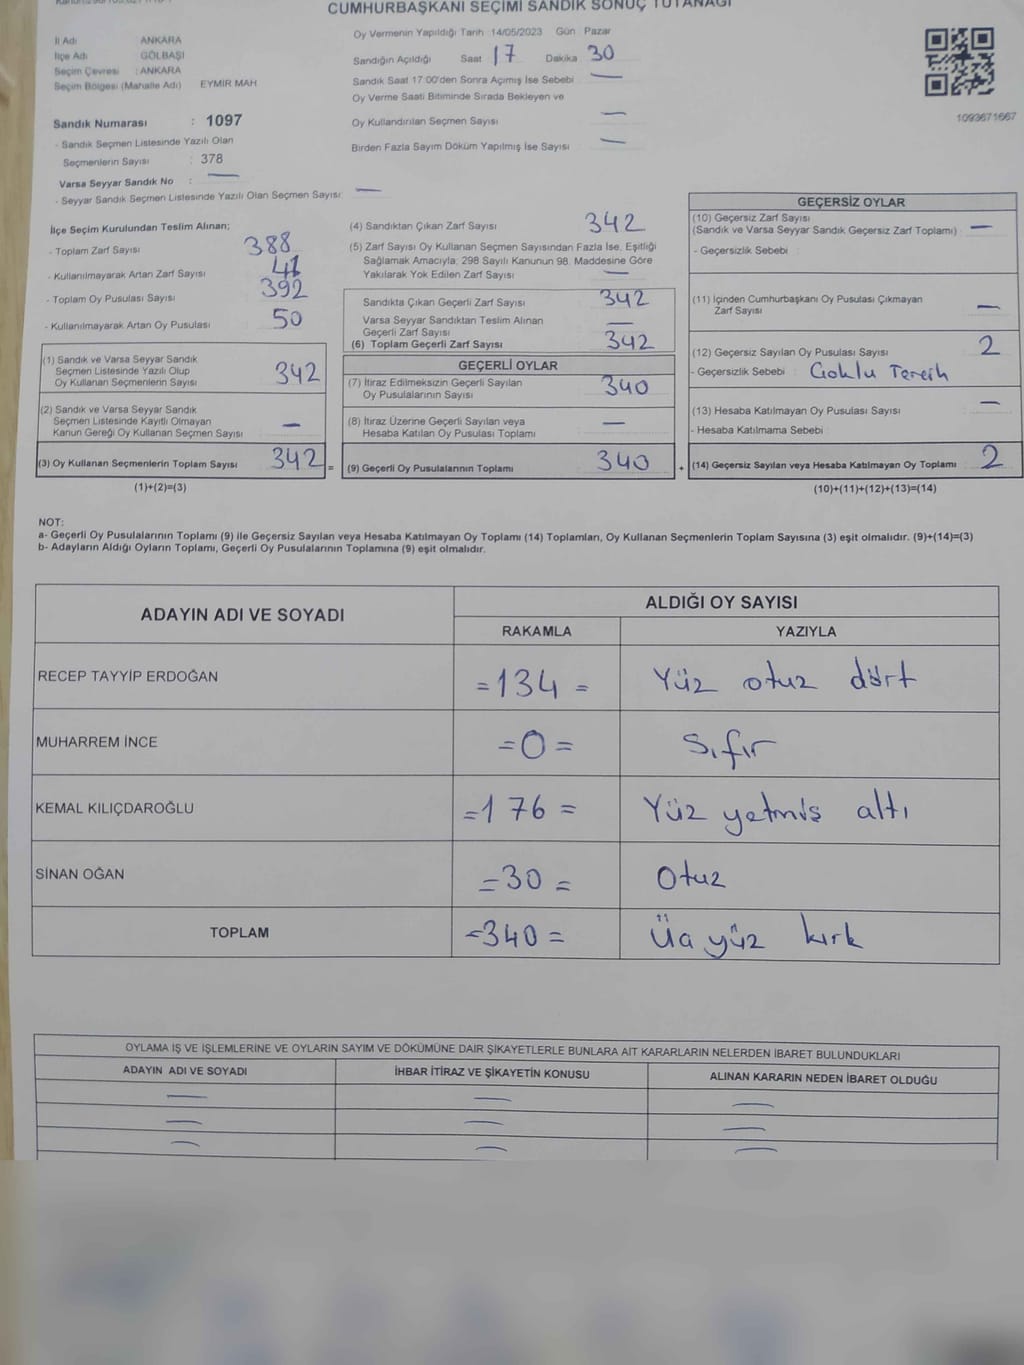 CUMHURBAŞKANI SEÇİMİ SANDIK SONUÇ TUTANAĞI
İl Adı ANKARA
İlçe Adı GÖLBAŞI
Seçim Çevresi : ANKARA
Seçim Bölgesi (Mahalle Adı) EYMİR MAH
Sandık Numarası : 1097
- Sandık Seçmen Listesinde Yazılı Olan
Seçmenlerin Sayısı : 378
Varsa Seyyar Sandık No : —
- Seyyar Sandık Seçmen Listesinde Yazılı Olan Seçmen Sayısı: —
Oy Vermenin Yapıldığı Tarih 14/05/2023 Gün Pazar
Sandığın Açıldığı Saat 17 Dakika 30
Sandık Saat 17:00'den Sonra Açımış İse Sebebi —
Oy Verme Saati Bitiminde Sırada Bekleyen ve
Oy Kullandırılan Seçmen Sayısı —
Birden Fazla Sayım Döküm Yapılmış İse Sayısı —
1093671667
İlçe Seçim Kurulundan Teslim Alınan;
- Toplam Zarf Sayısı 388
- Kullanılmayarak Artan Zarf Sayısı 41
- Toplam Oy Pusulası Sayısı 392
- Kullanılmayarak Artan Oy Pusulası 50
(1) Sandık ve Varsa Seyyar Sandık
Seçmen Listesinde Yazılı Olup
Oy Kullanan Seçmenlerin Sayısı 342
(2) Sandık ve Varsa Seyyar Sandık
Seçmen Listesinde Kayıtlı Olmayan
Kanun Gereği Oy Kullanan Seçmen Sayısı —
(3) Oy Kullanan Seçmenlerin Toplam Sayısı 342 =
(1)+(2)=(3)
(4) Sandıktan Çıkan Zarf Sayısı 342
(5) Zarf Sayısı Oy Kullanan Seçmen Sayısından Fazla İse, Eşitliği
Sağlamak Amacıyla; 298 Sayılı Kanunun 98. Maddesine Göre
Yakılarak Yok Edilen Zarf Sayısı —
Sandıkta Çıkan Geçerli Zarf Sayısı 342
Varsa Seyyar Sandıktan Teslim Alınan
Geçerli Zarf Sayısı —
(6) Toplam Geçerli Zarf Sayısı 342
GEÇERLİ OYLAR
(7) İtiraz Edilmeksizin Geçerli Sayılan
Oy Pusulalarının Sayısı 340
(8) İtiraz Üzerine Geçerli Sayılan veya
Hesaba Katılan Oy Pusulası Toplamı —
(9) Geçerli Oy Pusulalarının Toplamı 340 +
GEÇERSİZ OYLAR
(10) Geçersiz Zarf Sayısı
(Sandık ve Varsa Seyyar Sandık Geçersiz Zarf Toplamı) —
- Geçersizlik Sebebi :
(11) İçinden Cumhurbaşkanı Oy Pusulası Çıkmayan
Zarf Sayısı —
(12) Geçersiz Sayılan Oy Pusulası Sayısı 2
- Geçersizlik Sebebi : Çoklu Tercih
(13) Hesaba Katılmayan Oy Pusulası Sayısı —
- Hesaba Katılmama Sebebi :
(14) Geçersiz Sayılan veya Hesaba Katılmayan Oy Toplamı 2
(10)+(11)+(12)+(13)=(14)
NOT:
a- Geçerli Oy Pusulalarının Toplamı (9) ile Geçersiz Sayılan veya Hesaba Katılmayan Oy Toplamı (14) Toplamları, Oy Kullanan Seçmenlerin Toplam Sayısına (3) eşit olmalıdır. (9)+(14)=(3)
b- Adayların Aldığı Oyların Toplamı, Geçerli Oy Pusulalarının Toplamına (9) eşit olmalıdır.
ADAYIN ADI VE SOYADI ALDIĞI OY SAYISI
RAKAMLA YAZIYLA
RECEP TAYYİP ERDOĞAN =134= Yüz otuz dört
MUHARREM İNCE =0= Sıfır
KEMAL KILIÇDAROĞLU =176= Yüz yetmiş altı
SİNAN OĞAN =30= Otuz
TOPLAM =340= Üç yüz kırk
OYLAMA İŞ VE İŞLEMLERİNE VE OYLARIN SAYIM VE DÖKÜMÜNE DAİR ŞİKAYETLERLE BUNLARA AİT KARARLARIN NELERDEN İBARET BULUNDUKLARI
ADAYIN ADI VE SOYADI İHBAR İTİRAZ VE ŞİKAYETİN KONUSU ALINAN KARARIN NEDEN İBARET OLDUĞU
— — —
— — —
— — —